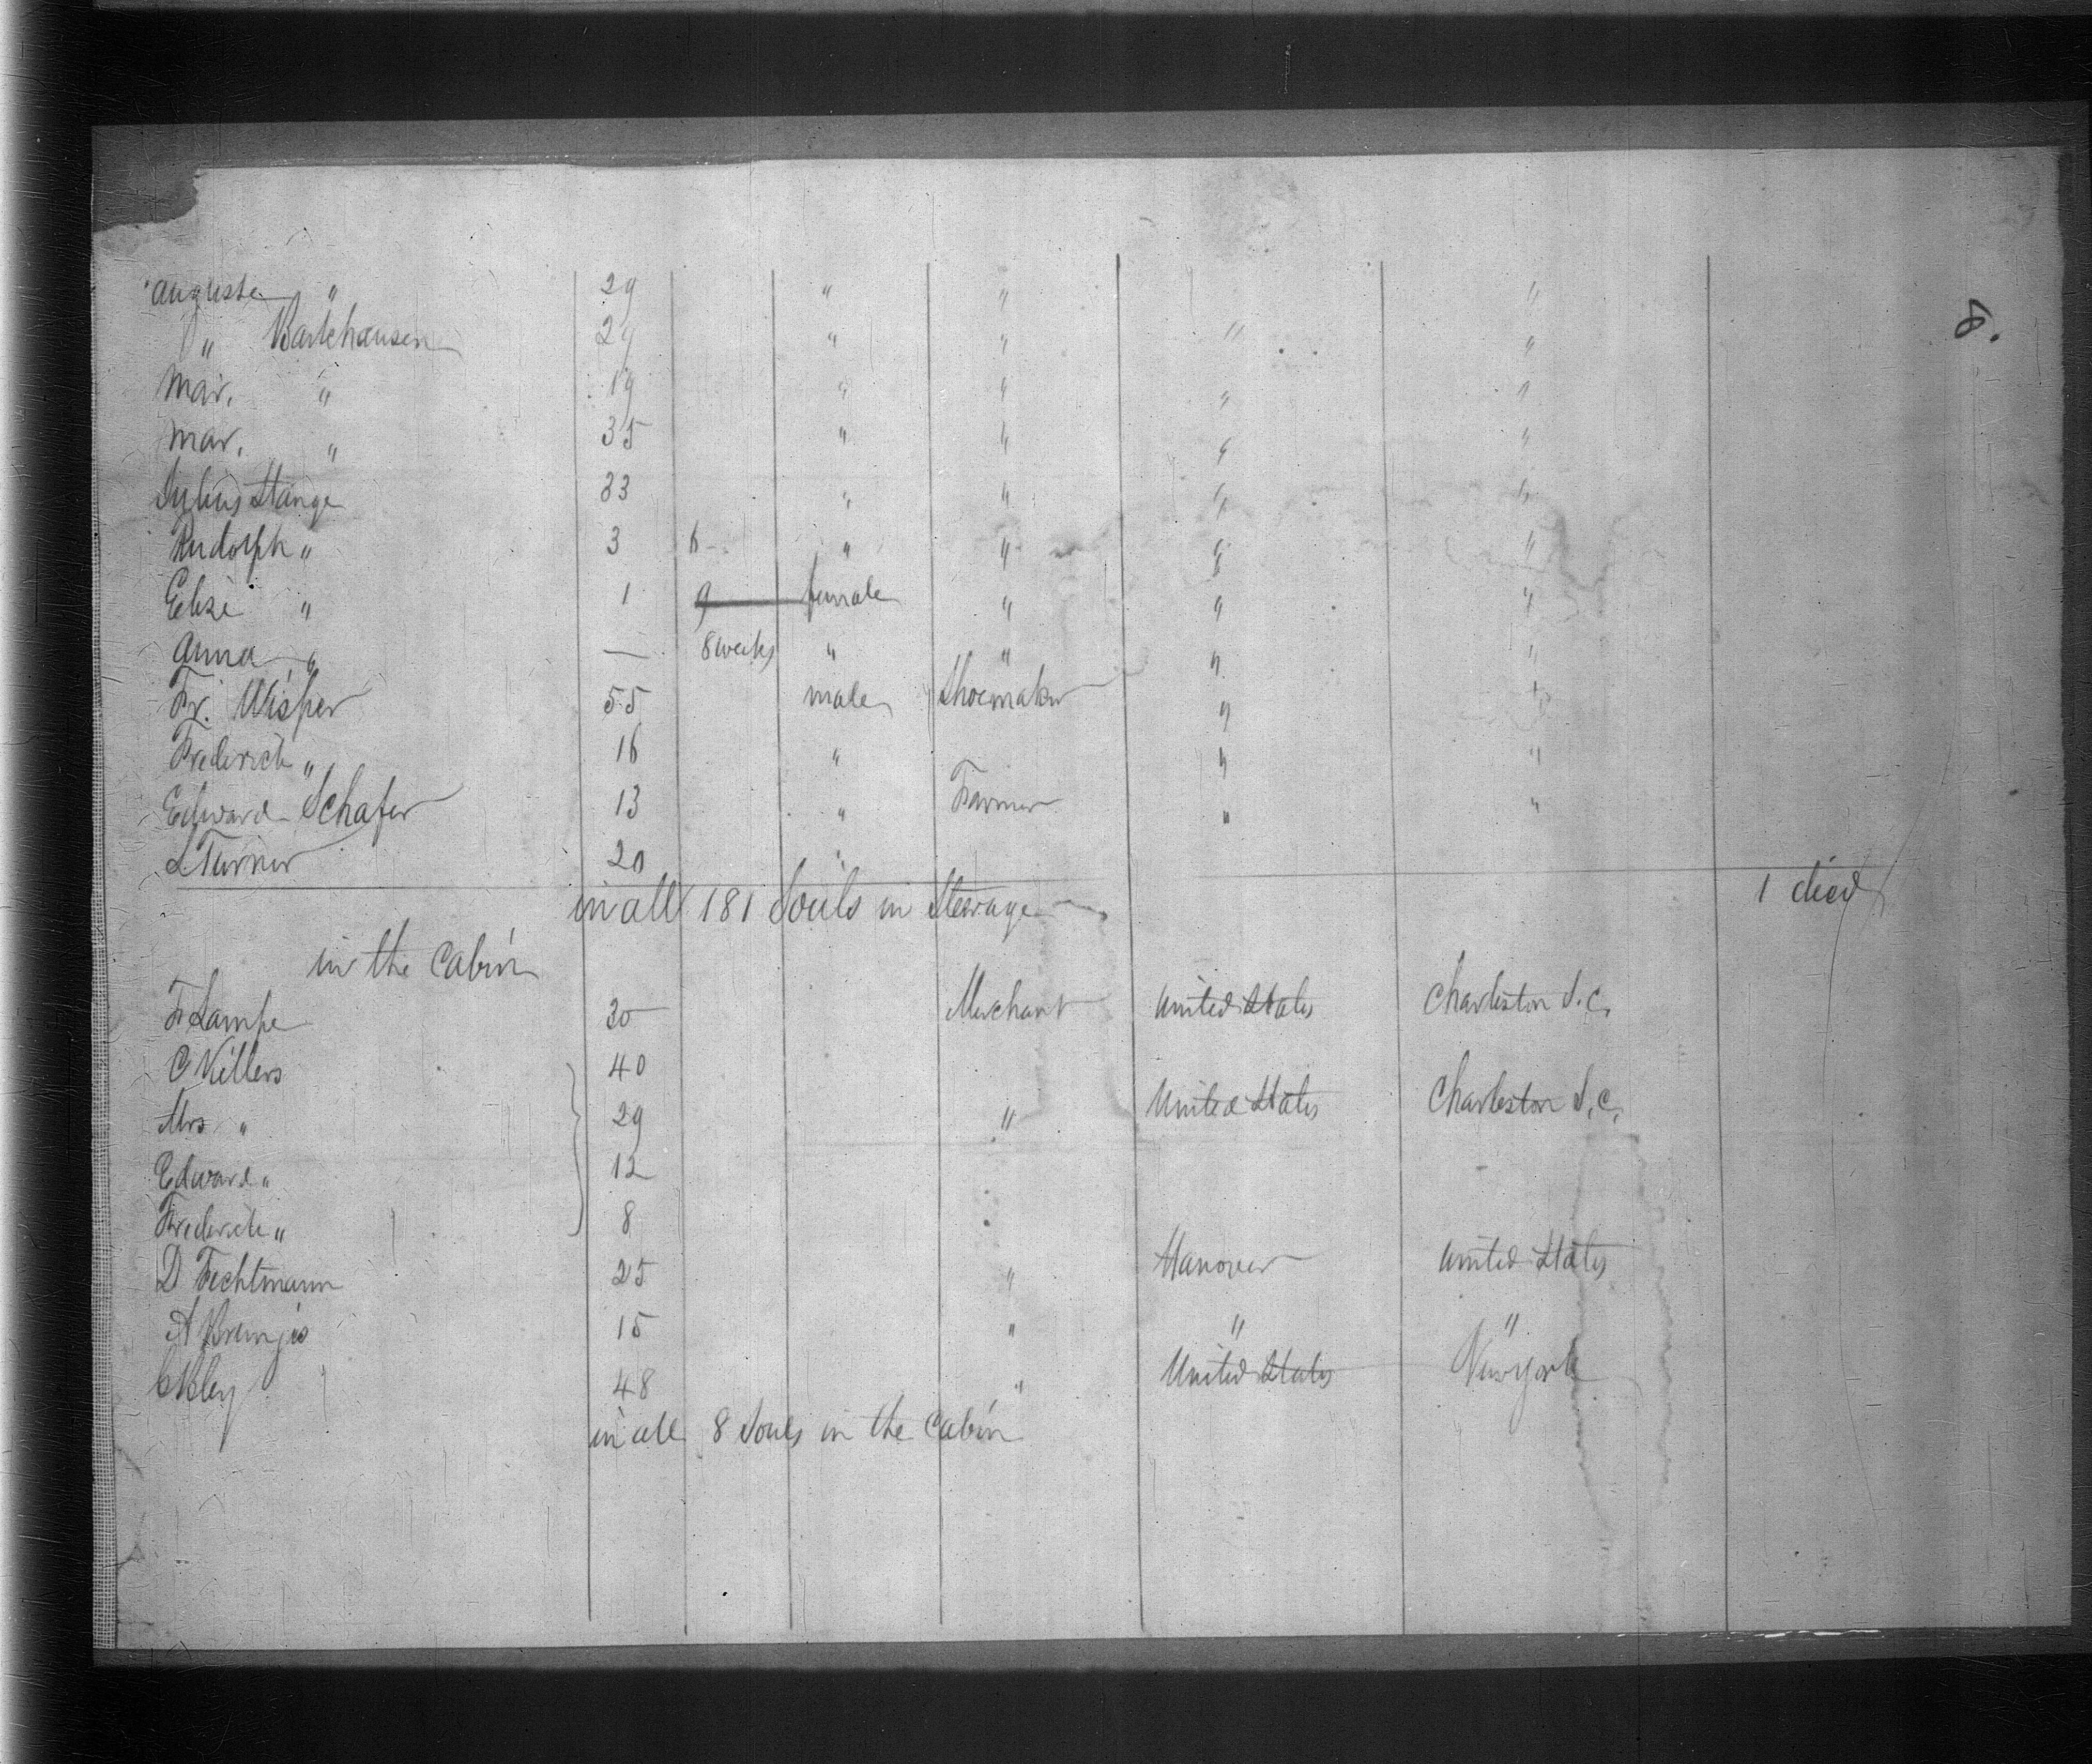 Auguste " 29 " " "
" Barkhausen 29 " " " "
Mar. " 19 " " " "
Mar. " 35 " " " "
Julius Stange 33 " " " "
Rudolph " 3 6 " " " "
Elise " 1 9 female " " "
Anna " — 8 weeks " " " "
Fr. Wisper 55 male Shoemaker " "
Frederich " 16 " " "
Edward Schafer 13 " Farmer " "
L Turner 20 "
in all 181 Souls in Steerage 1 died
in the Cabin
F Lampe 30 Merchant United States Charleston S.C.
C Killers 40
Mrs " 29 " United States Charleston S.C.
Edward " 12
Frederich " 8
D Fechtmann 25 " Hanover United States
A 15 " " "
48 " United States New York
in all 8 Souls in the Cabin
8.